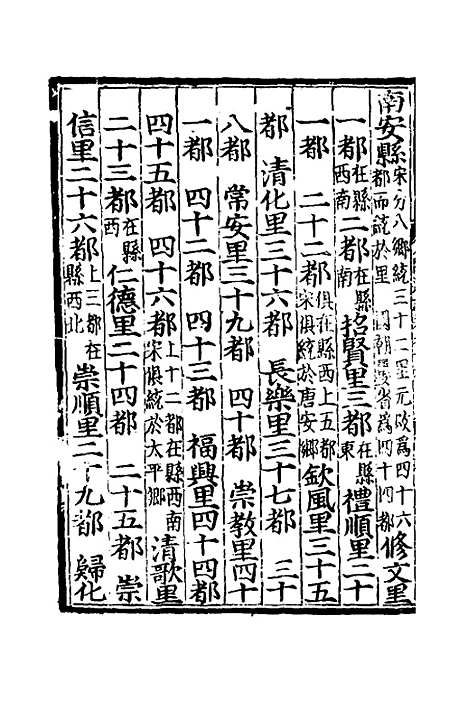 南安縣宋分八鄉統三十二里元改爲四十六都而統於里 國朝省爲四十四都修文里
一都在縣西南 二都在縣南 招賢里三都在縣東 禮順里二十
一都 二十二都俱在縣西上五都宋俱統於唐安鄉 欽風里三十五
都 清化里三十六都 長樂里三十七都 三十
八都 常安里三十九都 四十都 崇教里四十
一都 四十二都 四十三都 福興里四十四都
四十五都 四十六都上十二都在縣西南宋俱統於太平鄉 清歌里
二十三都在縣西 仁德里二十四都 二十五都 崇
信里二十六都上三都在縣西北 崇順里二十九都 歸化